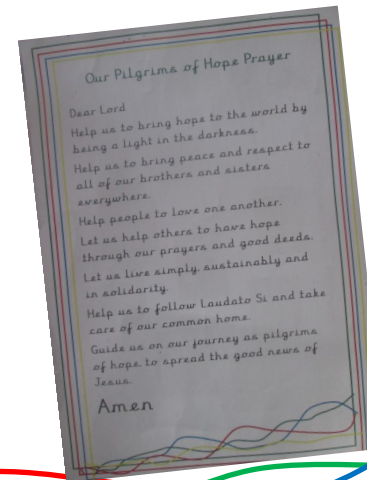 Our Pilgrims of Hope Prayer
Dear Lord
Help us to bring hope to the world by
being a light in the darkness.
Help us to bring peace and respect to
all of our brothers and sisters
everywhere.
Help people to love one another.
Let us help others to have hope
through our prayers and good deeds.
Let us live simply, sustainably and
in solidarity.
Help us to follow Laudato Si and take
care of our common home.
Guide us on our journey as pilgrims
of hope to spread the good news of
Jesus.
Amen